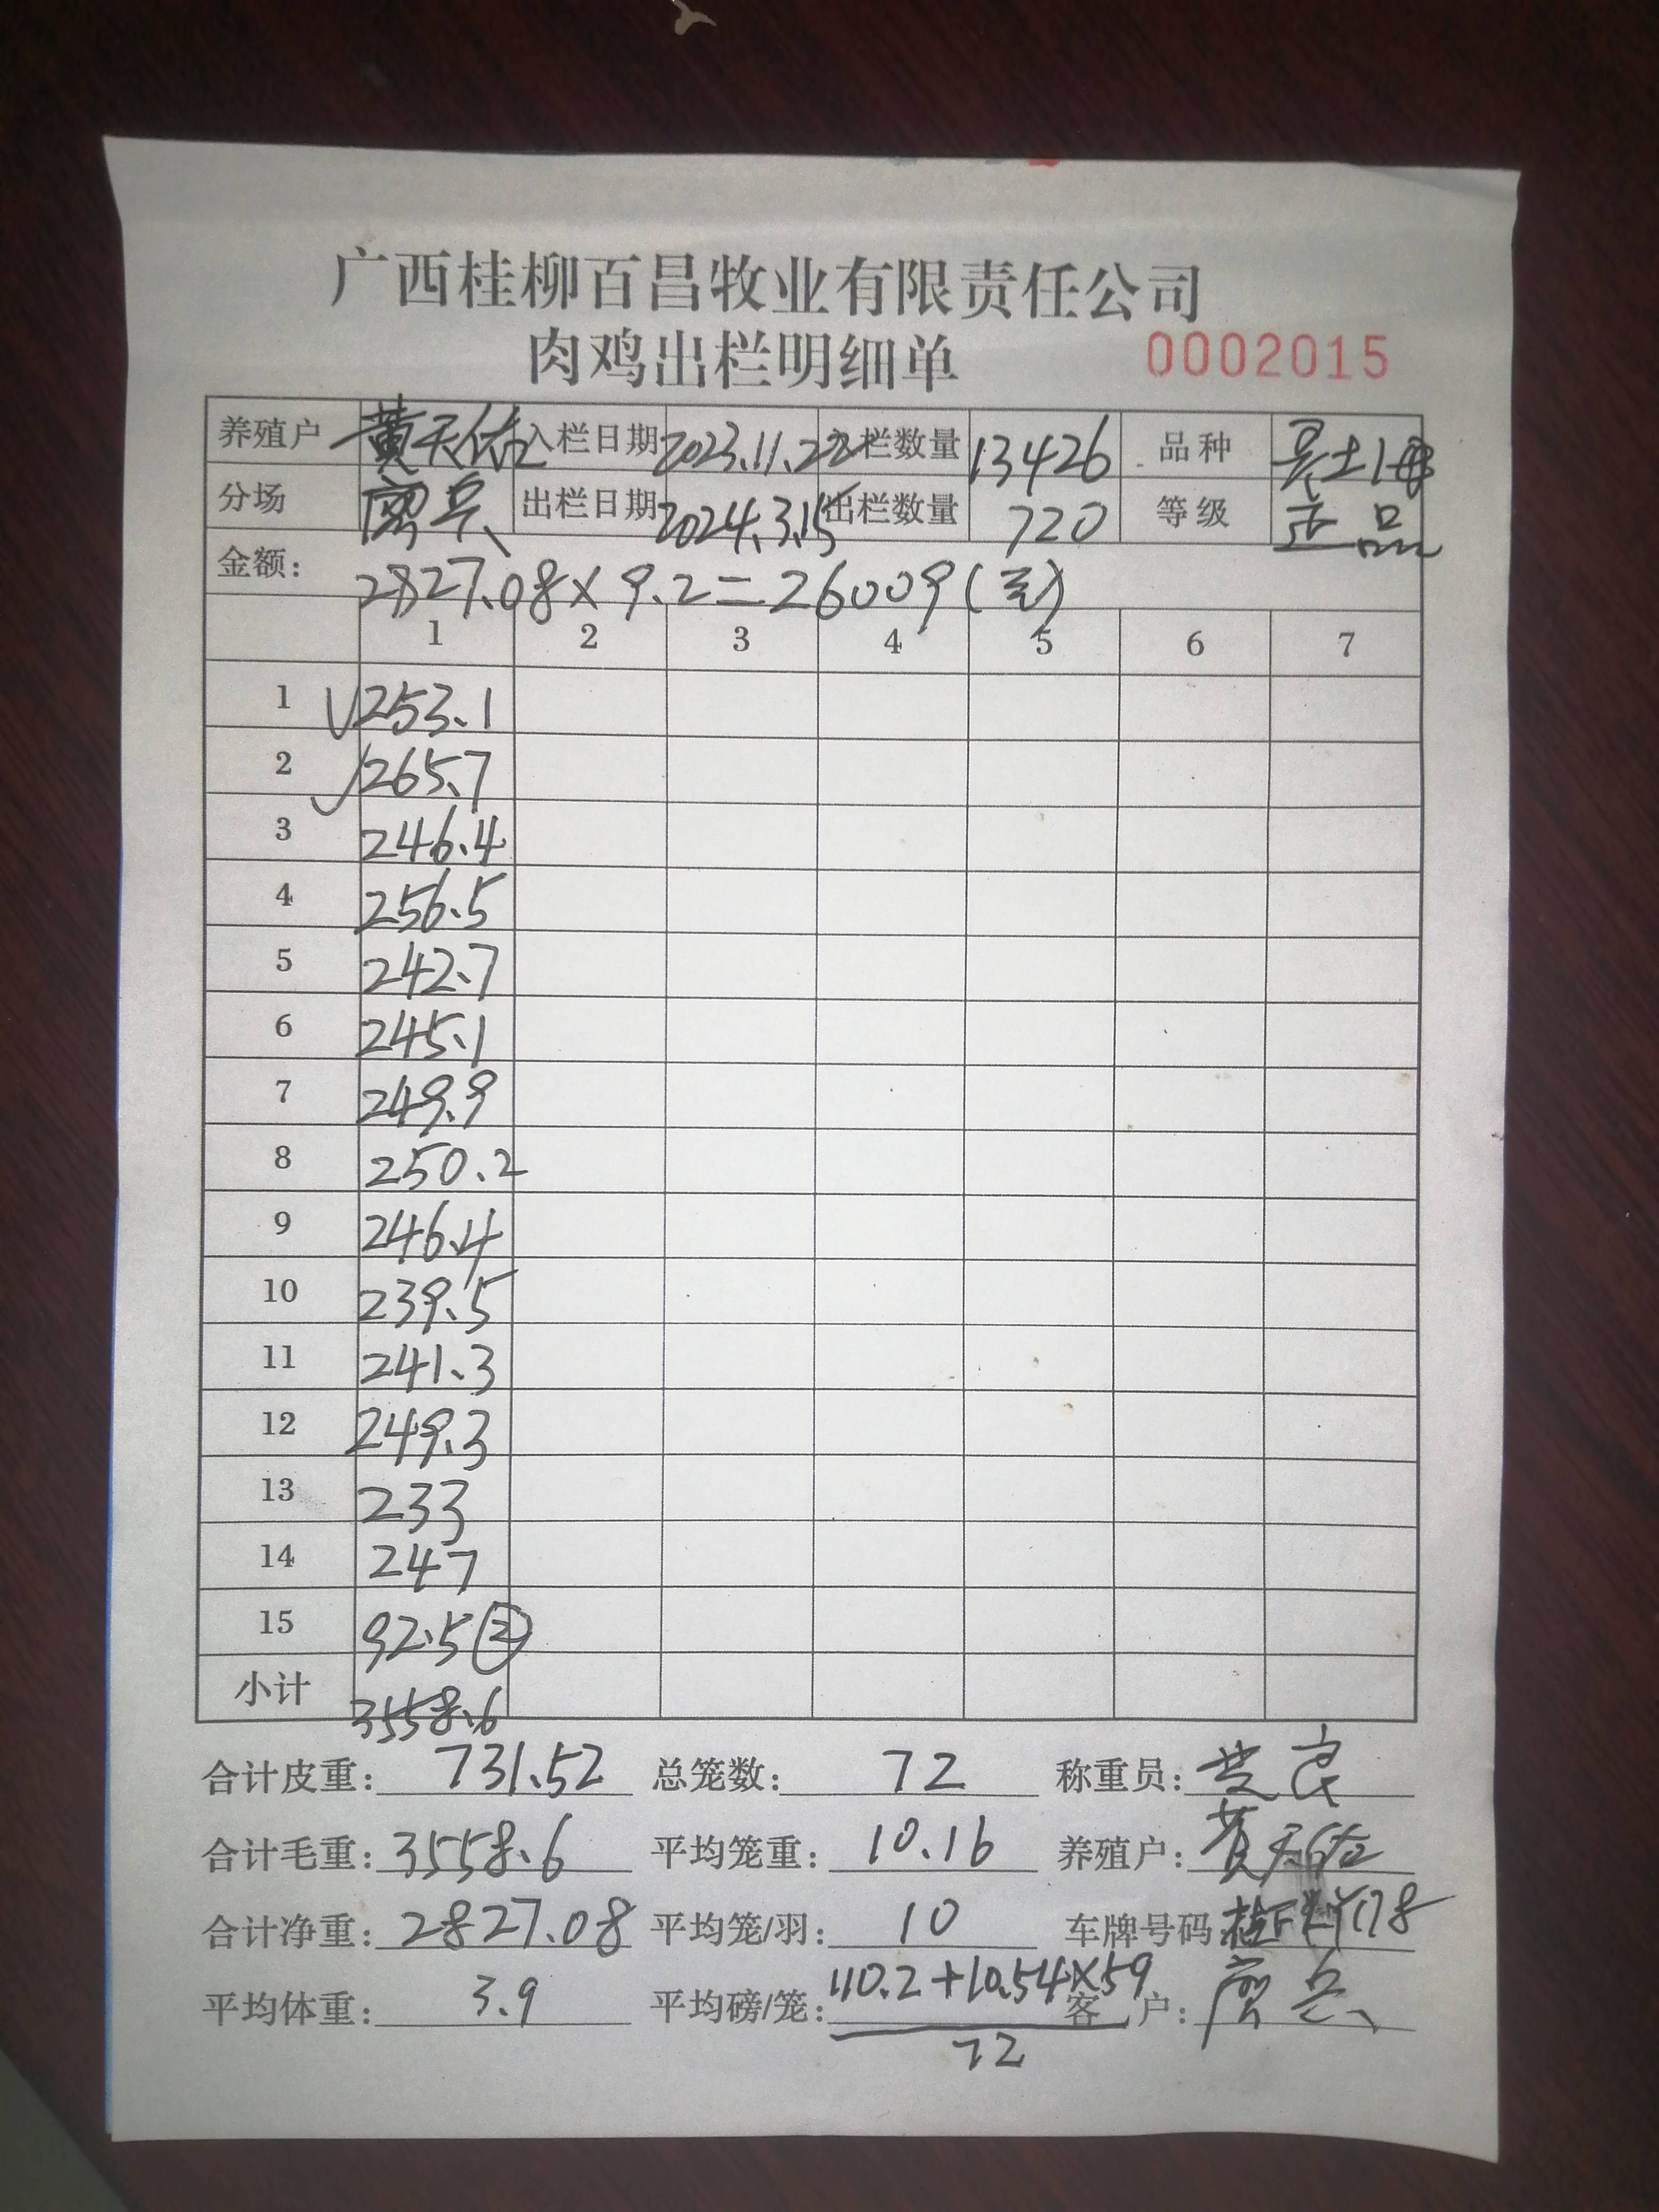 广西桂柳百昌牧业有限责任公司
肉鸡出栏明细单 0002015
养殖户 黄天佑 入栏日期 2023.11.22 入栏数量 13426 品种 土1母
分场 出栏日期 2024.3.15 出栏数量 720 等级 正品
金额: 2827.08×9.2=26009(元)
1 2 3 4 5 6 7
1 √253.1
2 √265.7
3 246.4
4 256.5
5 242.7
6 245.1
7 249.9
8 250.2
9 246.4
10 239.5
11 241.3
12 249.3
13 233
14 247
15 92.5②
小计 3558.6
合计皮重: 731.52 总笼数: 72 称重员:
合计毛重: 3558.6 平均笼重: 10.16 养殖户: 黄天佑
合计净重: 2827.08 平均笼/羽: 10 车牌号码
平均体重: 3.9 平均磅/笼: 110.2+10.54×59 客户:
72